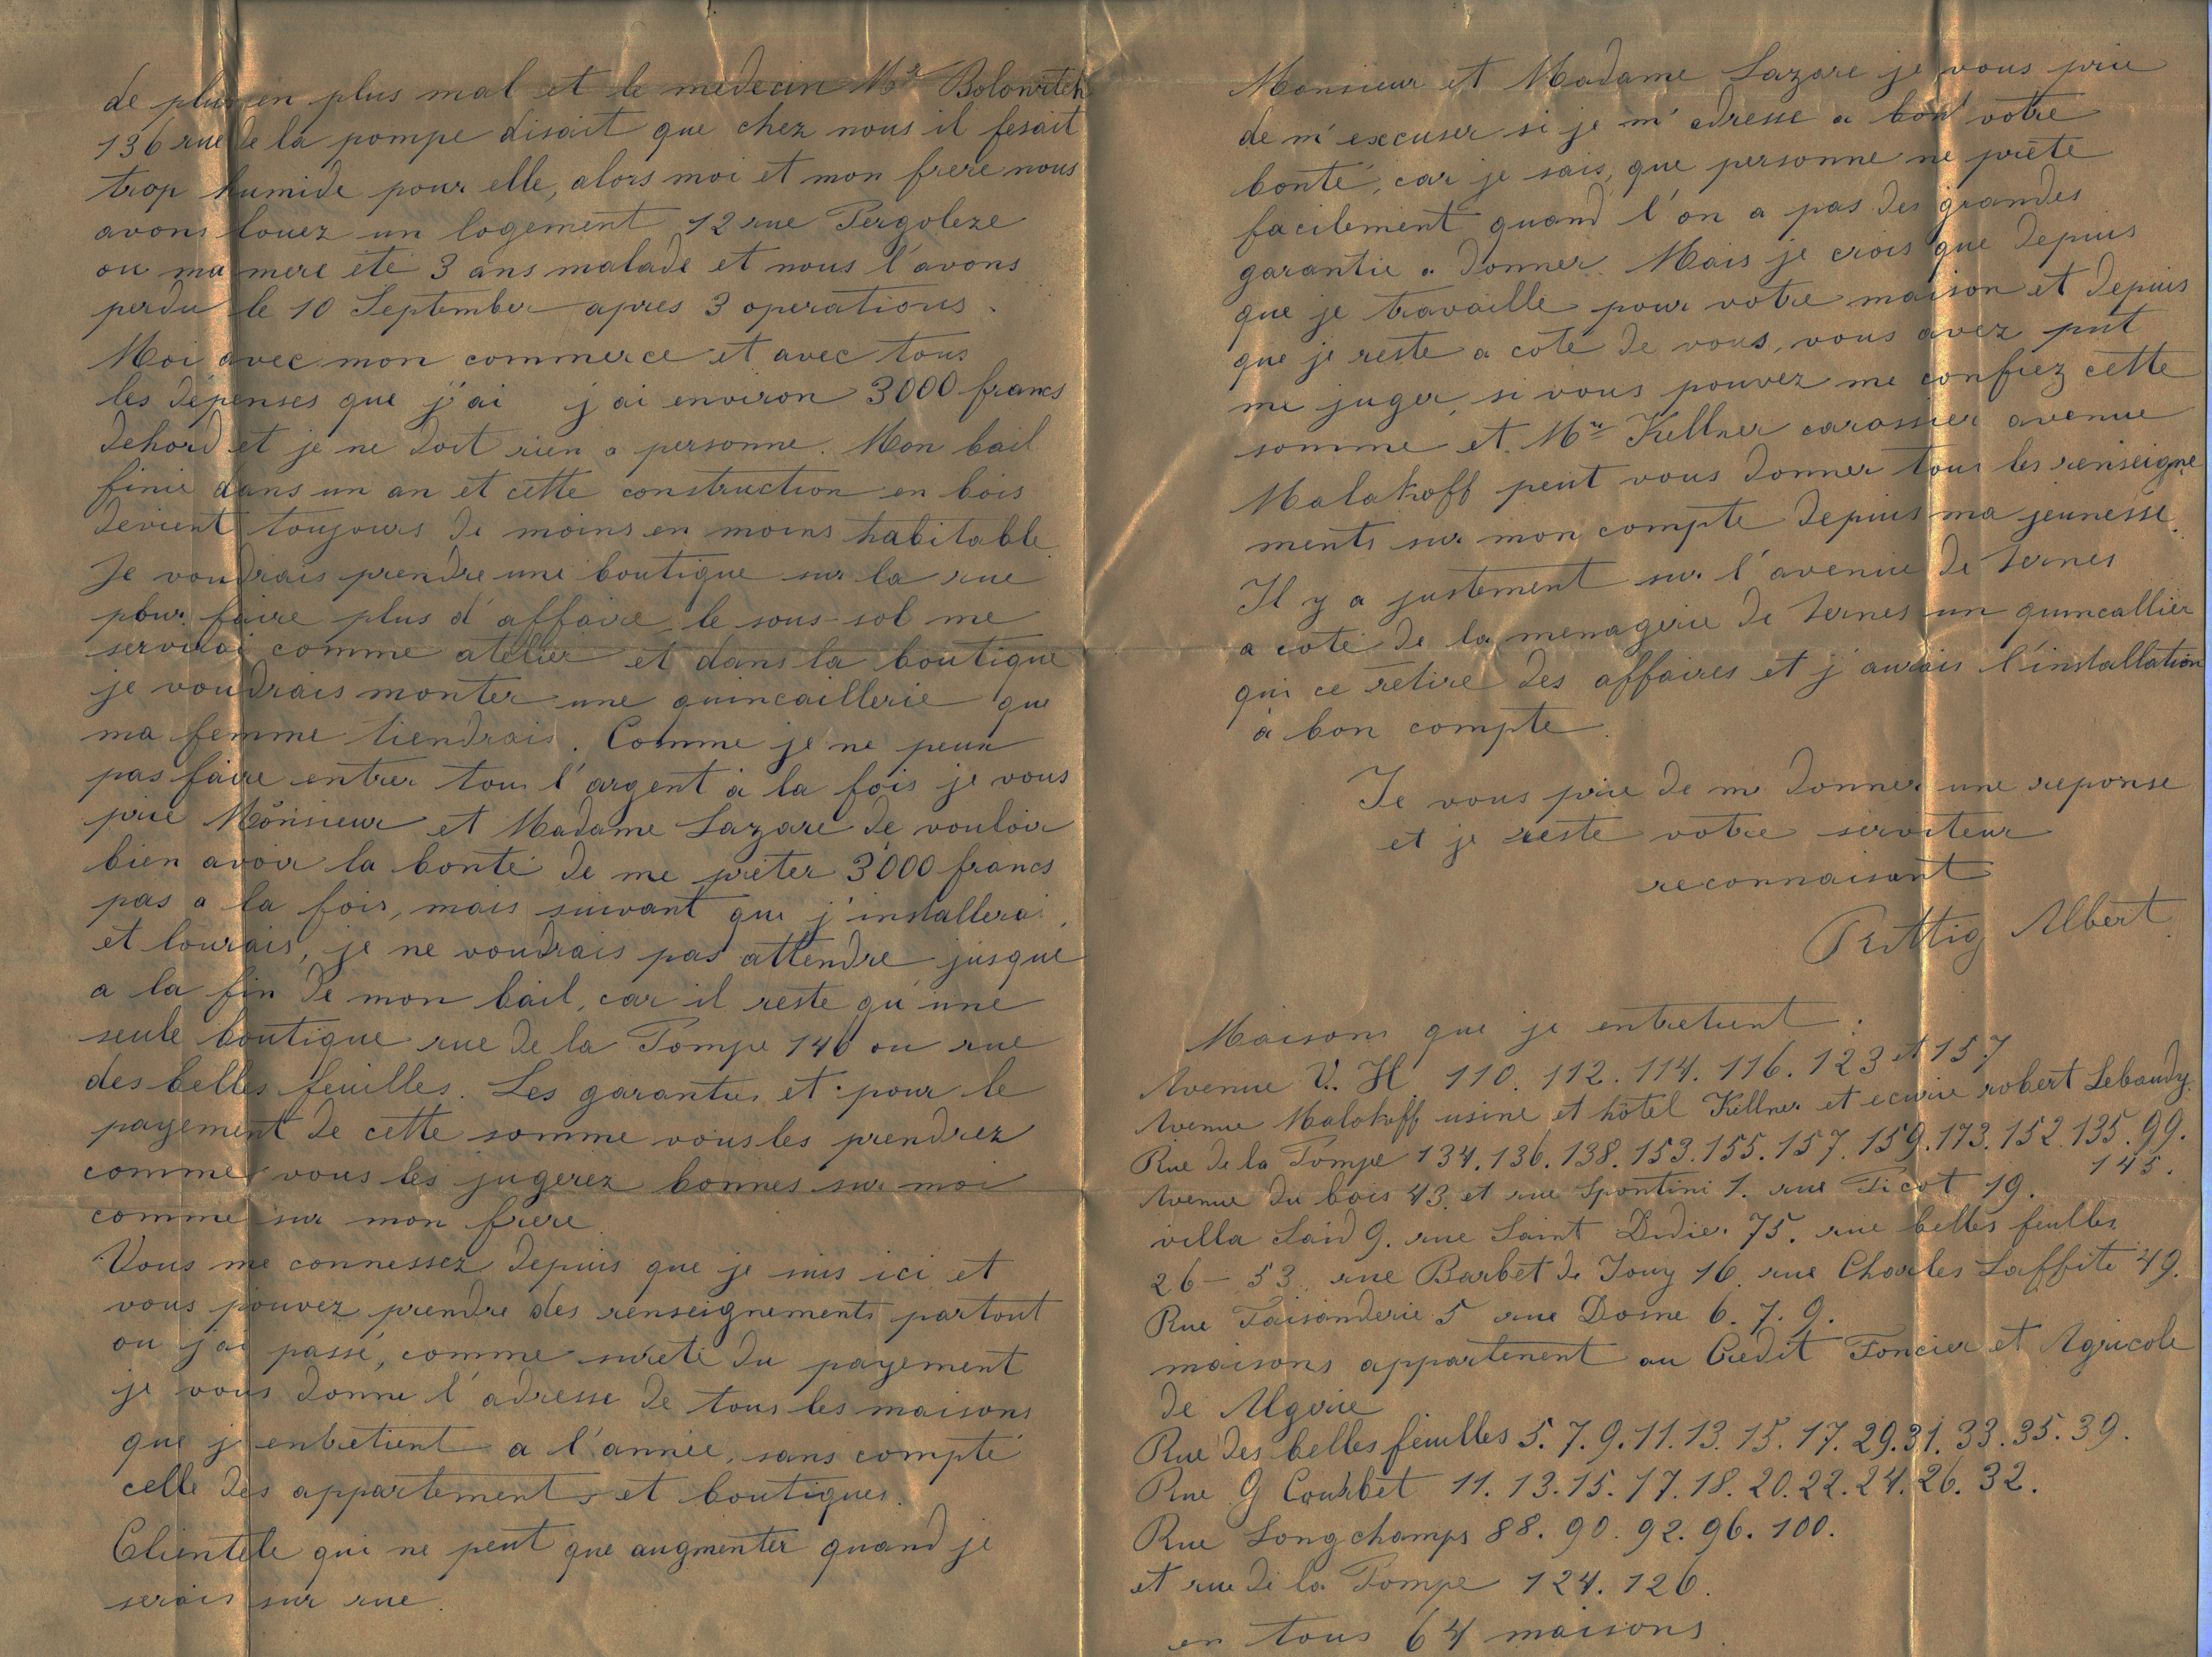 de plus en plus mal et le medecin Mr Bolowitch
136 rue de la pompe disait que chez nous il fesait
trop humide pour elle, alors moi et mon frere nous
avons louez un logement 12 rue Pergoleze
ou ma mere été 3 ans malade et nous l'avons
perdu le 10 September apres 3 operations.
Moi avec mon commerce et avec tous
les dépenses que j'ai j'ai environ 3000 francs
dehord et je ne doit rien a personne. Mon bail
finie dans un an et cette construction en bois
devient toujours de moins en moins habitable
Je voudrais prendre une boutique sur la rue
pour faire plus d'affaire le sous-sol me
servirai comme atelier et dans la boutique
je voudrais monter une quincaillerie que
ma femme tiendrais. Comme je ne peux
pas faire entrer tous l'argent à la fois je vous
prie Monsieur et Madame Lazare de vouloir
bien avoir la bonté de me prêter 3000 francs
pas a la fois, mais suivant que j'installerai
et lourais, je ne voudrais pas attendre jusqué
a la fin de mon bail, car il reste qu'une
seule boutique rue de la Pompe 140 ou rue
des belles feuilles. Les garanties et pour le
payement de cette somme vous les prendrez
comme vous les jugerez bonnes sur moi
comme sur mon frere
Vous me connessez depuis que je suis ici et
vous pouvez prendre des renseignements partout
ou j'ai passé, comme sureté du payement
je vous donne l'adresse de tous les maisons
que j'entretient a l'année, sans compté
celle des appartements et boutiques.
Clientèle qui ne peut que augmenter quand je
serais sur rue.
Monsieur et Madame Lazare je vous prie
de m'excuser si je m'adresse a bon votre
bonté, car je sais, que personne ne prète
facilement quand l'on a pas des grandes
garantie a donner. Mais je crois que depuis
que je travaille pour votre maison et depuis
que je reste a coté de vous, vous avez put
me juger, si vous pouvez me confiez cette
somme et Mr Kellner carossier avenue
Malakoff peut vous donner tous les renseigne
ments sur mon compte depuis ma jeunesse.
Il y a justement sur l'avenue de ternes
a coté de la menagerie de ternes un quincallier
qui ce retire des affaires et j'aurais l'installation
à bon compte.
Je vous prie de me donner une reponse
et je reste votre serviteur
reconnaisant
Albert
Maisons que je entretient :
Avenue V. H. 110. 112. 114. 116. 123 et 157
Avenue Malakoff usine et hôtel Kellner et ecurie robert Lebaudy.
Rue de la Pompe 134. 136. 138. 153. 155. 157. 159. 173. 152. 135. 99.
145.
Avenue du bois 43. et rue Spontini 1. rue Picot 19.
villa Said 9. rue Saint Didier 75. rue belles feulles
26 - 53. rue Barbet de Jouy 16. rue Charles Laffite 49.
Rue Faisanderie 5 rue Dosne 6. 7. 9.
maisons appartenent au Crédit Foncier et Agricole
de Algerie
Rue des belles feuilles 5. 7. 9. 11. 13. 15. 17. 29. 31. 33. 35. 39.
Rue G Courbet 11. 13. 15. 17. 18. 20. 22. 24. 26. 32.
Rue Longchamps 88. 90. 92. 96. 100.
et rue de la Pompe 124. 126.
en tous 64 maisons.